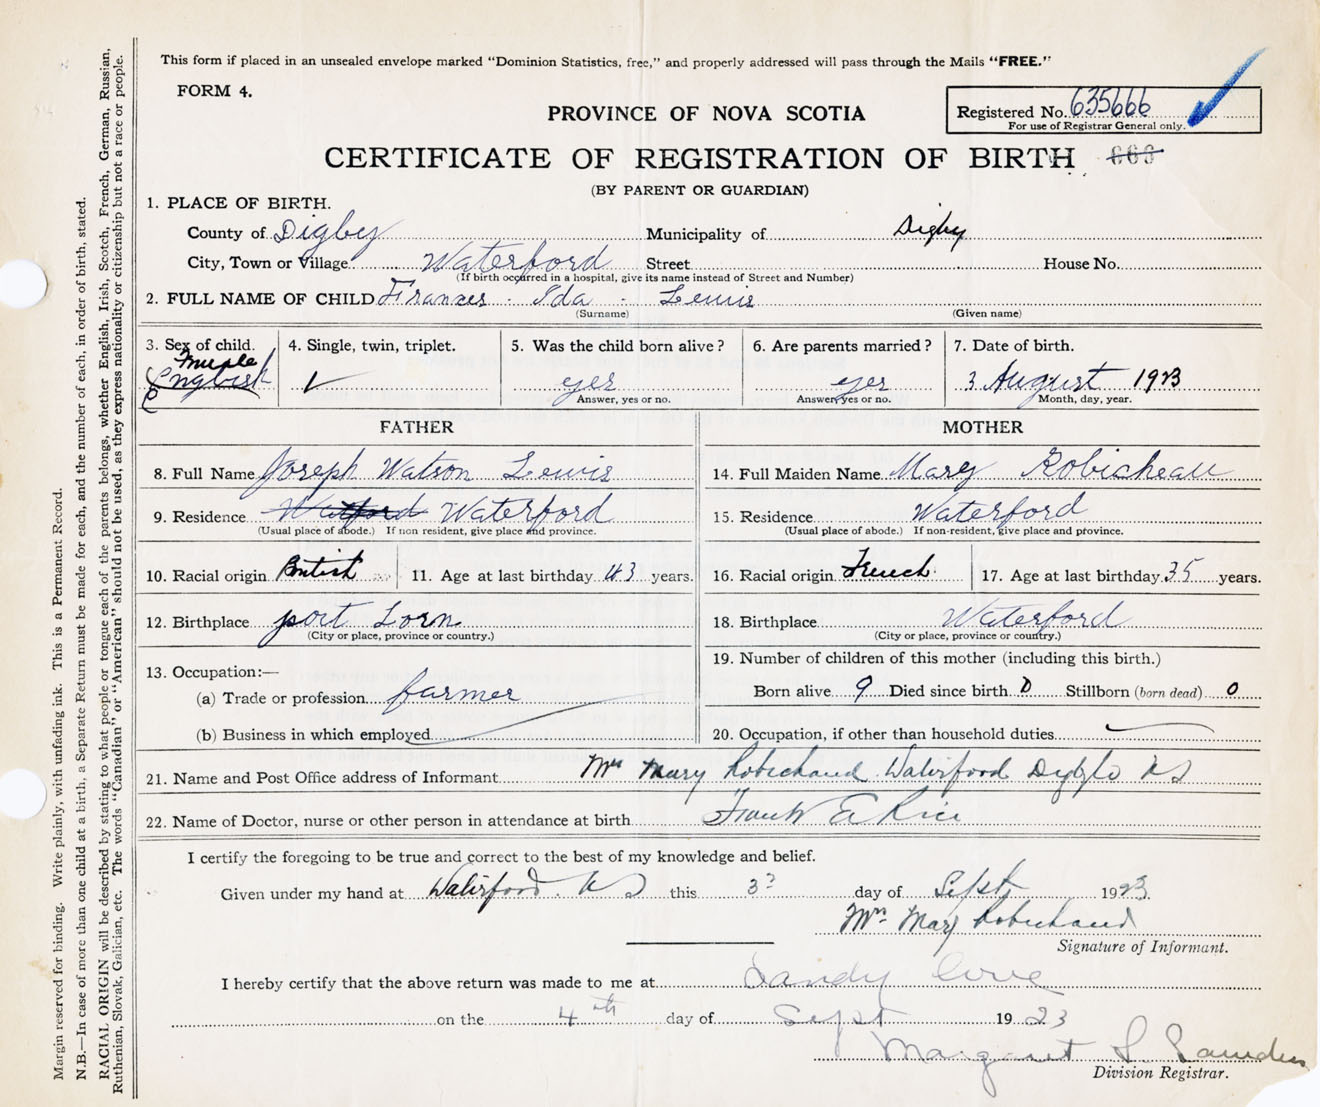 This form if placed in an unsealed envelope marked "Dominion Statistics, free," and properly addressed will pass through the Mails "FREE."
FORM 4.
PROVINCE OF NOVA SCOTIA
Registered No. 635666
For use of Registrar General only.
CERTIFICATE OF REGISTRATION OF BIRTH 666
(BY PARENT OR GUARDIAN)
1. PLACE OF BIRTH.
County of Digby Municipality of Digby
City, Town or Village Waterford Street House No.
(If birth occurred in a hospital, give its name instead of Street and Number)
2. FULL NAME OF CHILD Frances Ida Lewis
(Surname) (Given name)
3. Sex of child. 4. Single, twin, triplet. 5. Was the child born alive? 6. Are parents married? 7. Date of birth.
Female
English yes yes 3 August 1923
Answer, yes or no. Answer, yes or no. Month, day, year.
FATHER MOTHER
8. Full Name Joseph Watson Lewis 14. Full Maiden Name Mary Robicheau
9. Residence Watford Waterford 15. Residence Waterford
(Usual place of abode.) If non resident, give place and province. (Usual place of abode.) If non-resident, give place and province.
10. Racial origin British 11. Age at last birthday 43 years. 16. Racial origin French 17. Age at last birthday 35 years.
12. Birthplace port Lorn 18. Birthplace Waterford
(City or place, province or country.) (City or place, province or country.)
13. Occupation:— 19. Number of children of this mother (including this birth.)
(a) Trade or profession farmer Born alive 9 Died since birth 0 Stillborn (born dead) 0
(b) Business in which employed 20. Occupation, if other than household duties
21. Name and Post Office address of Informant Mrs Mary Robichaud Waterford Digby Co NS
22. Name of Doctor, nurse or other person in attendance at birth Frank E Rice
I certify the foregoing to be true and correct to the best of my knowledge and belief.
Given under my hand at Waterford NS this 3 day of Sept 1923
Mrs Mary Robichaud
Signature of Informant.
I hereby certify that the above return was made to me at Sandy Cove
on the 4th day of Sept 1923
Margaret S. Saunders
Division Registrar.
Margin reserved for binding. Write plainly, with unfading ink. This is a Permanent Record.
N.B.—In case of more than one child at a birth, a Separate Return must be made for each, and the number of each, in order of birth, stated.
RACIAL ORIGIN will be described by stating to what people or tongue each of the parents belongs, whether English, Irish, Scotch, French, German, Russian,
Ruthenian, Slovak, Galician, etc. The words "Canadian" or "American" should not be used, as they express nationality or citizenship but not a race or people.